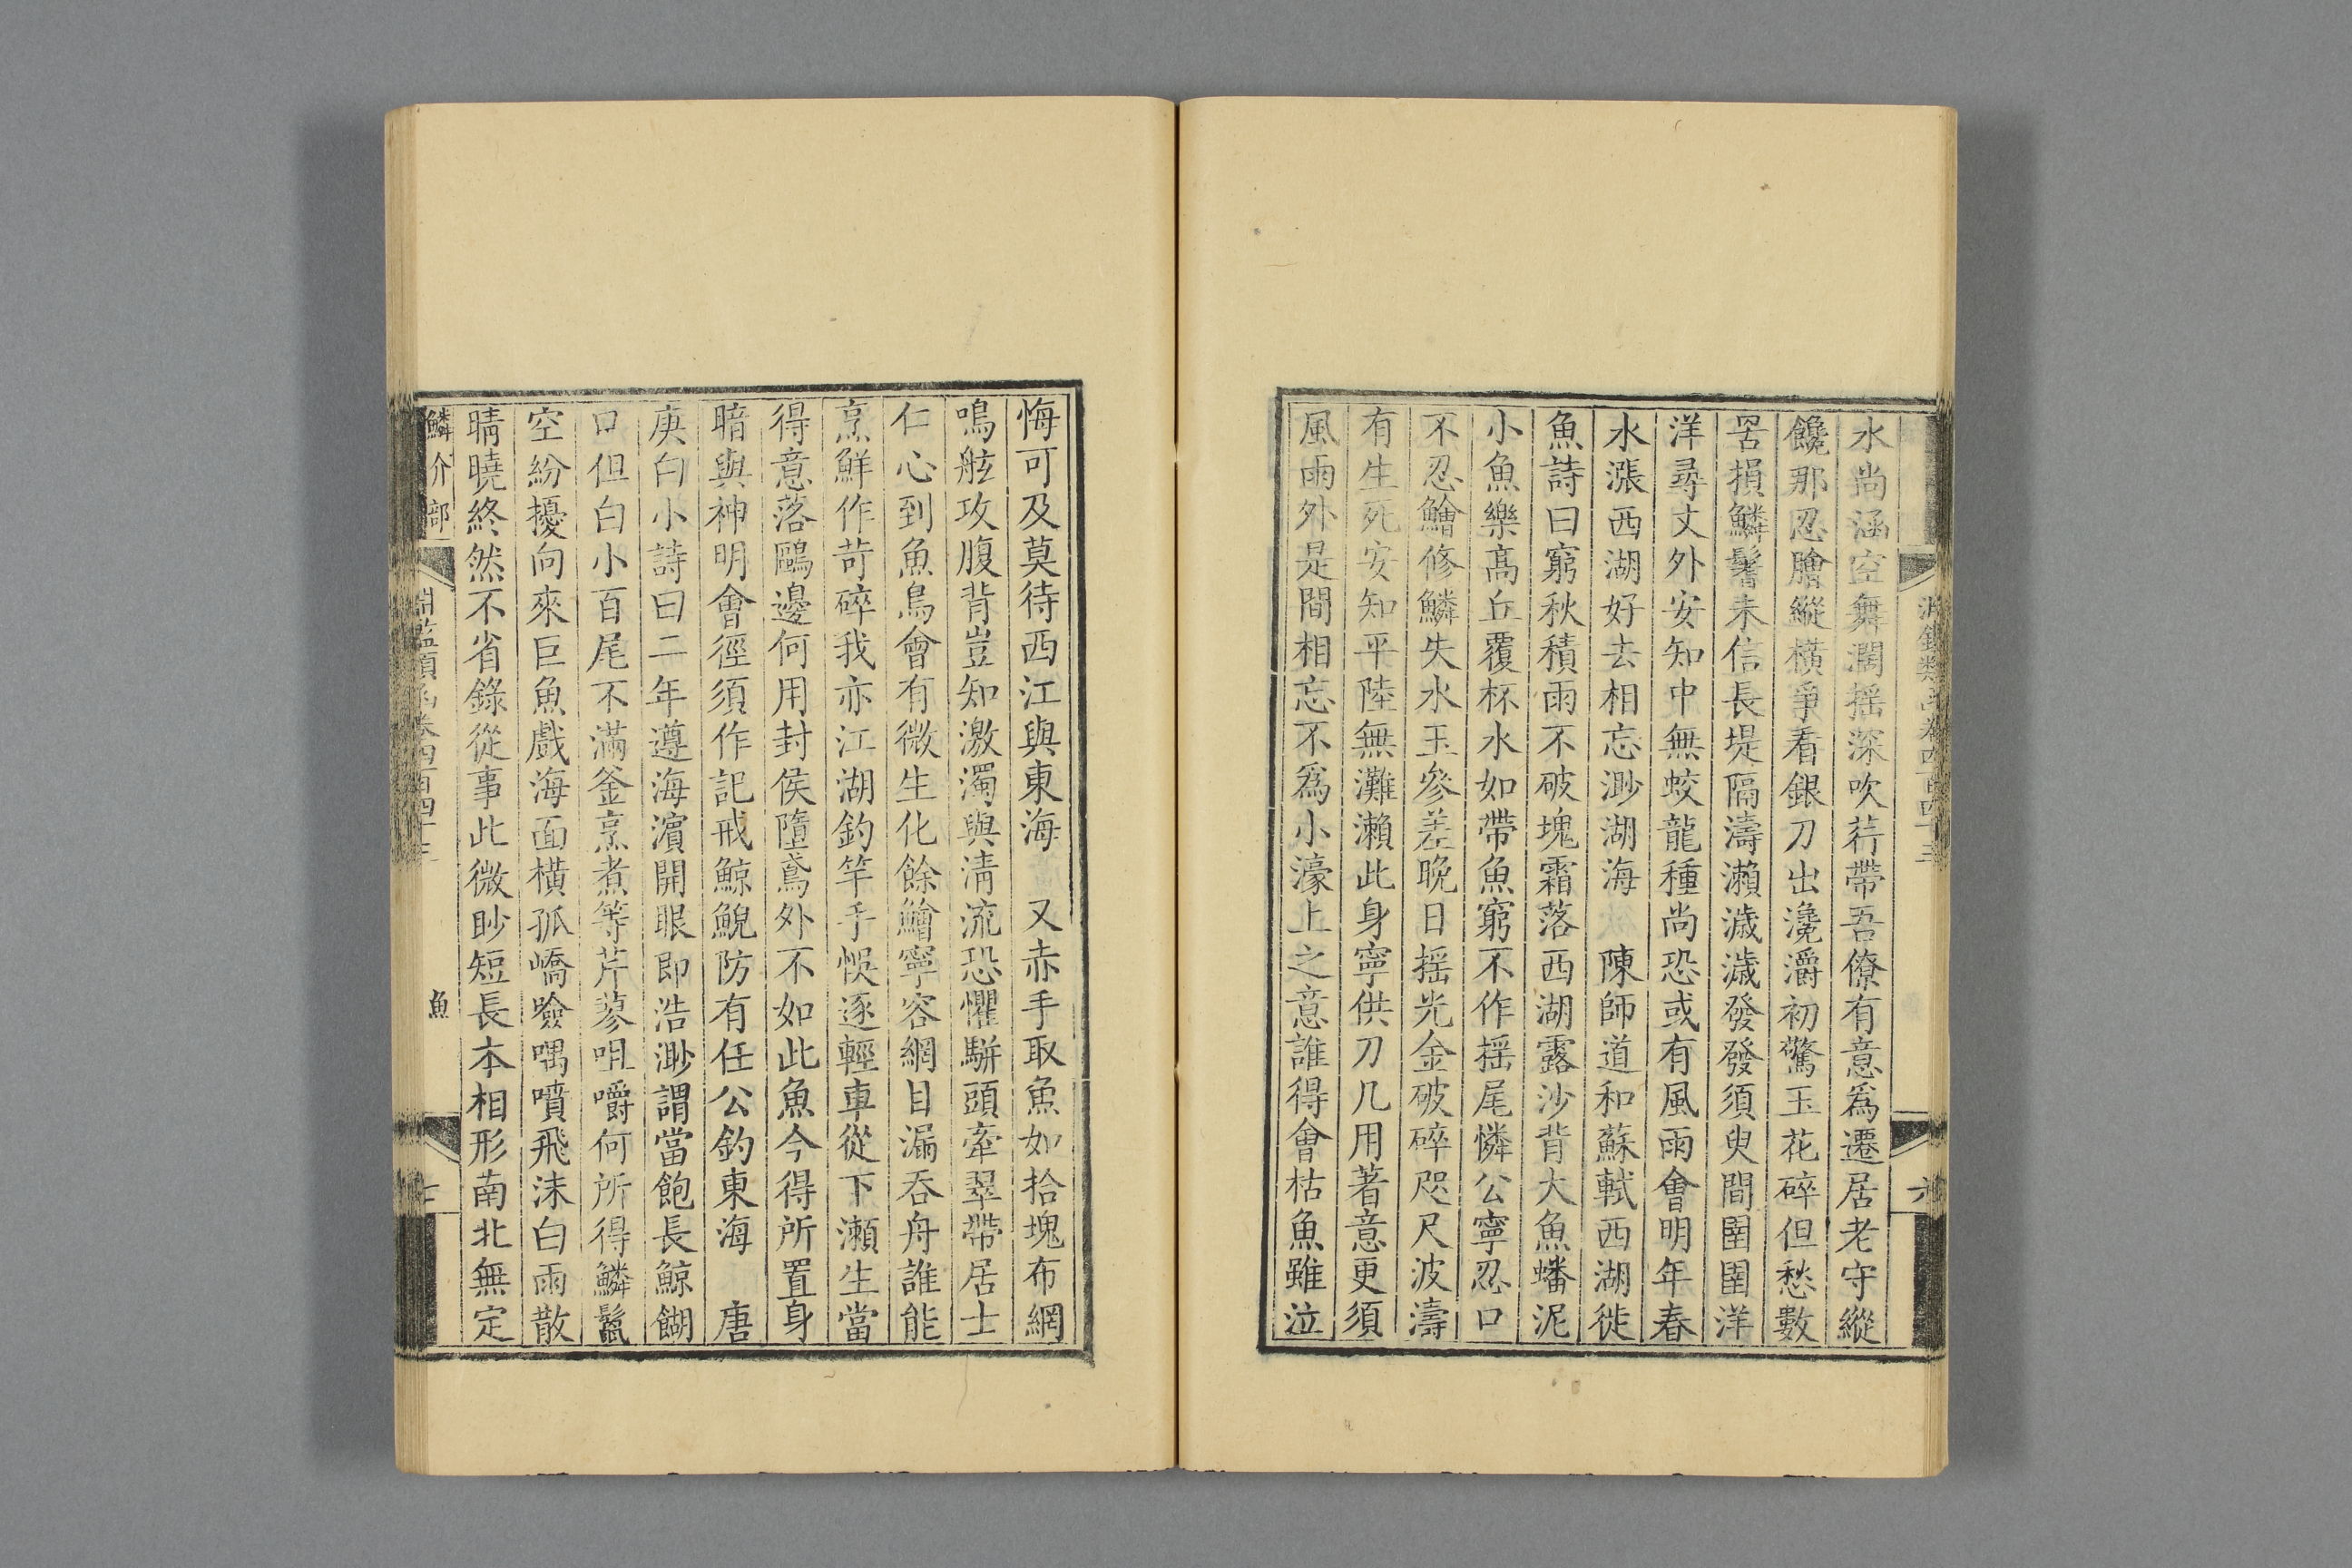 水尚涵空舞濶揺深吹荇帶吾僚有意爲遷居老守縱
饞那忍膾縱橫爭看銀刀出瀺灂初驚玉花碎但愁數
罟損鱗鬐未信長堤隔濤瀨濊濊發發須臾間圉圉洋
洋尋丈外安知中無蛟龍種尚恐或有風雨會明年春
水漲西湖好去相忘渺湖海 陳師道和蘇軾西湖徙
魚詩曰窮秋積雨不破塊霜落西湖露沙背大魚蟠泥
小魚樂髙丘覆杯水如帶魚窮不作揺尾憐公寧忍口
不忍鱠修鱗失水玉參差晩日揺光金破碎咫尺波濤
有生死安知平陸無灘瀨此身寧供刀几用著意更須
風雨外是間相忘不爲小濠上之意誰得會枯魚雖泣
悔可及莫待西江與東海 又赤手取魚如拾塊布網
鳴舷攻腹背豈知激濁與淸流恐懼駢頭牽翠帶居士
仁心到魚鳥會有微生化餘鱠寧容網目漏吞舟誰能
烹鮮作苛碎我亦江湖釣竿手悞逐輕車從下瀨生當
得意落鷗邊何用封侯墮鳶外不如此魚今得所置身
暗與神明會徑須作記戒鯨鯢防有任公釣東海 唐
庚白小詩曰二年遵海濱開眼即浩渺謂當飽長鯨餬
口但白小百尾不滿釜烹煮等芹蓼咀嚼何所得鱗鬣
空紛擾向來巨魚戲海面橫孤嶠噞喁噴飛沫白雨散
晴曉終然不省錄從事此微眇短長本相形南北無定
鱗介部一
魚